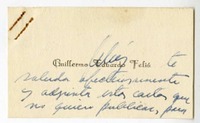 Guillermo Eduardo Feliú
te
saluda afectuosamente
y adjunta esta carta que
no quiero publicar, pues